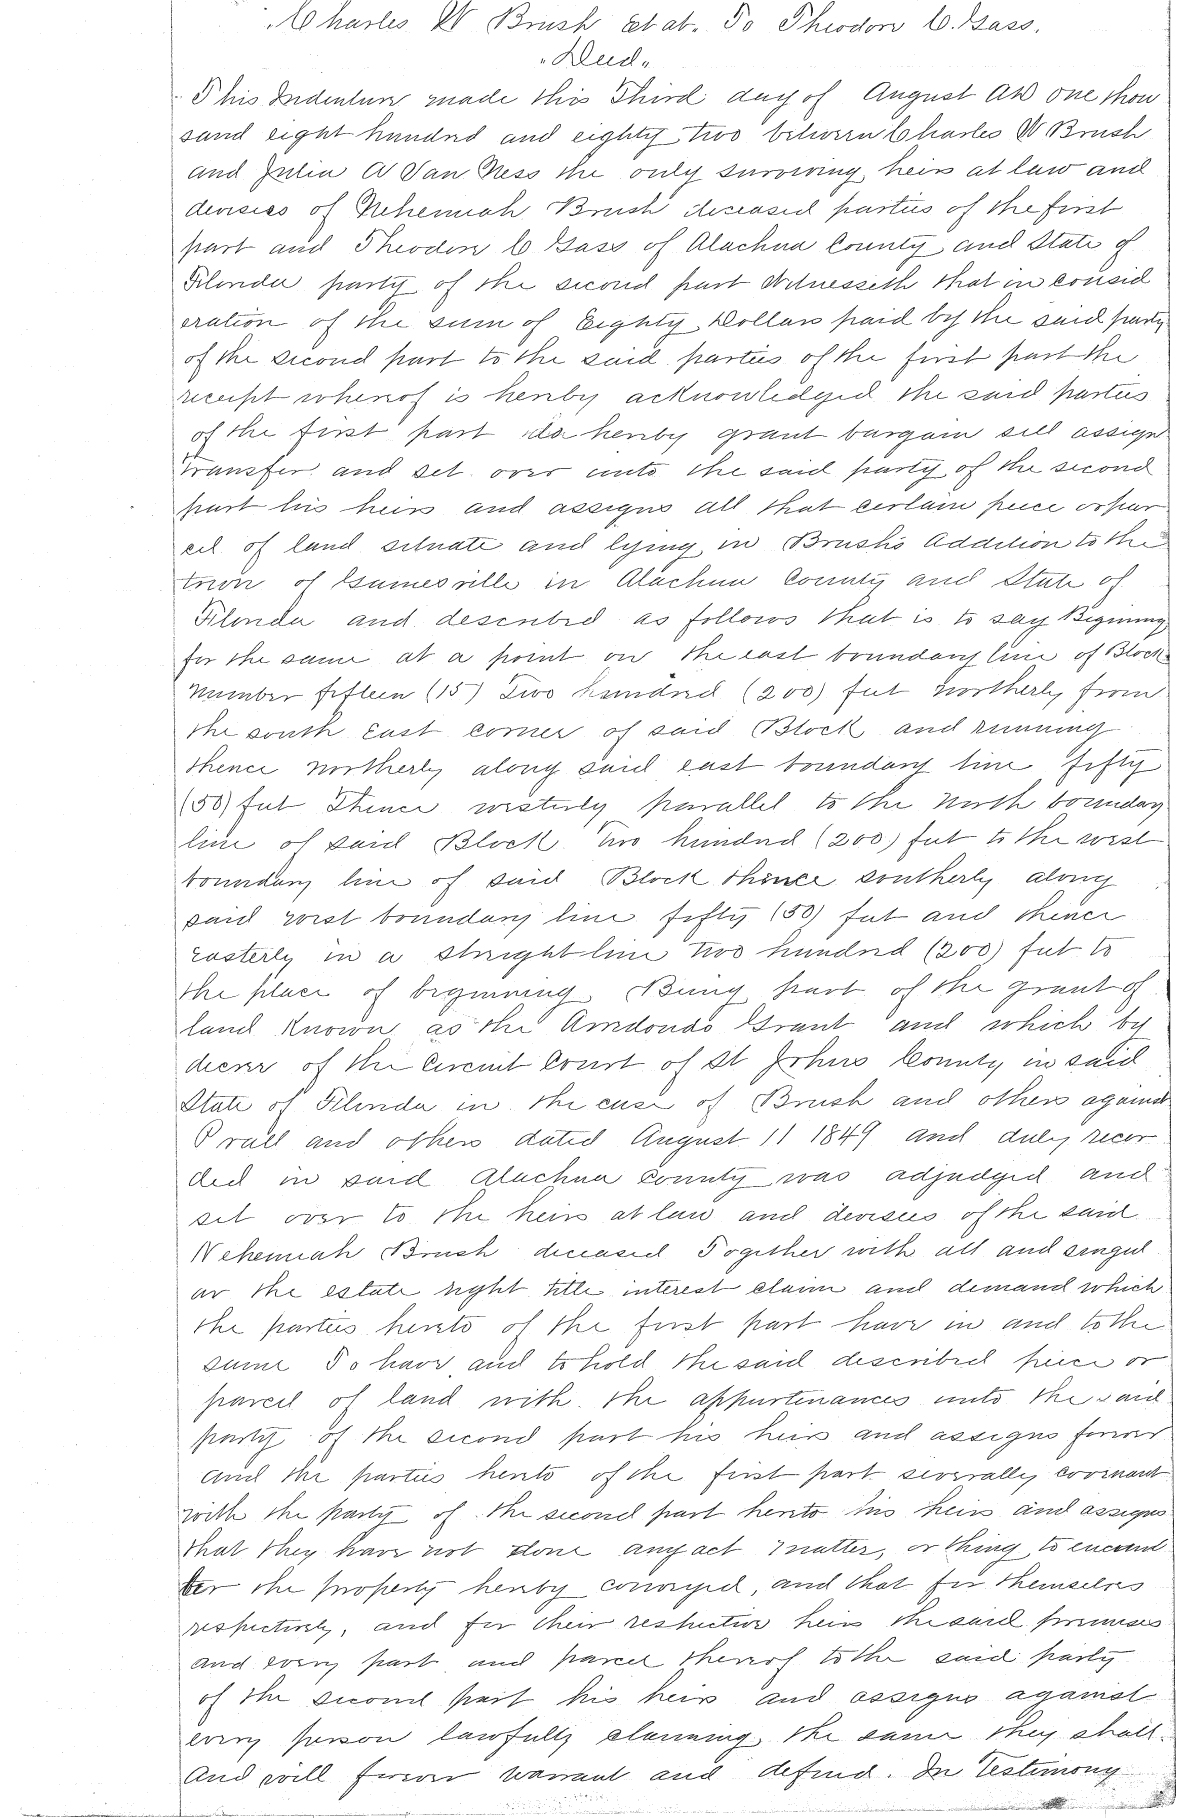 Charles W Brush et al. To Theodore C. Gass.
"Deed"
This Indenture made this Third day of August AD one thou
sand eight hundred and eighty two between Charles W Brush
and Julia A Van Ness the only surviving heirs at law and
devisees of Nehemiah Brush deceased parties of the first
part and Theodore C Gass of Alachua County and State of
Florida party of the second part Witnesseth that in consid
eration of the sum of Eighty Dollars paid by the said party
of the second part to the said parties of the first part the
receipt whereof is hereby acknowledged the said parties
of the first part do hereby grant bargain sell assign
transfer and set over unto the said party of the second
part his heirs and assigns all that certain piece or par
cel of land situate and lying in Brush's Addition to the
town of Gainesville in Alachua County and State of
Florida and described as follows that is to say Begining
for the same at a point on the east boundary line of Block
number fifteen (15) Two hundred (200) feet northerly from
the south East corner of said Block and running
thence northerly along said east boundary line fifty
(50) feet Thence westerly parallel to the North boundary
line of said Block Two hundred (200) feet to the west
boundary line of said Block thence southerly along
said west boundary line fifty (50) feet and thence
easterly in a straight line two hundred (200) feet to
the place of beginning. Being part of the grant of
land known as the Arredondo Grant and which by
decree of the Circuit Court of St Johns County in said
State of Florida in the case of Brush and others against
Prall and others dated August 11 1849 and duly recor
ded in said Alachua County was adjudged and
set over to the heirs at law and devisees of the said
Nehemiah Brush deceased Together with all and singul
ar the estate right title interest claim and demand which
the parties hereto of the first part have in and to the
same To have and to hold the said described piece or
parcel of land with the appurtenances unto the said
party of the second part his heirs and assigns forever
and the parties hereto of the first part severally covenant
with the party of the second part hereto his heirs and assigns
that they have not done any act matter, or thing to encum
ber the property hereby conveyed, and that for themselves
respectively, and for their respective heirs the said premises
and every part and parcel thereof to the said party
of the second part his heirs and assigns against
every person lawfully claiming the same they shall.
And will forever warrant and defend. In Testimony